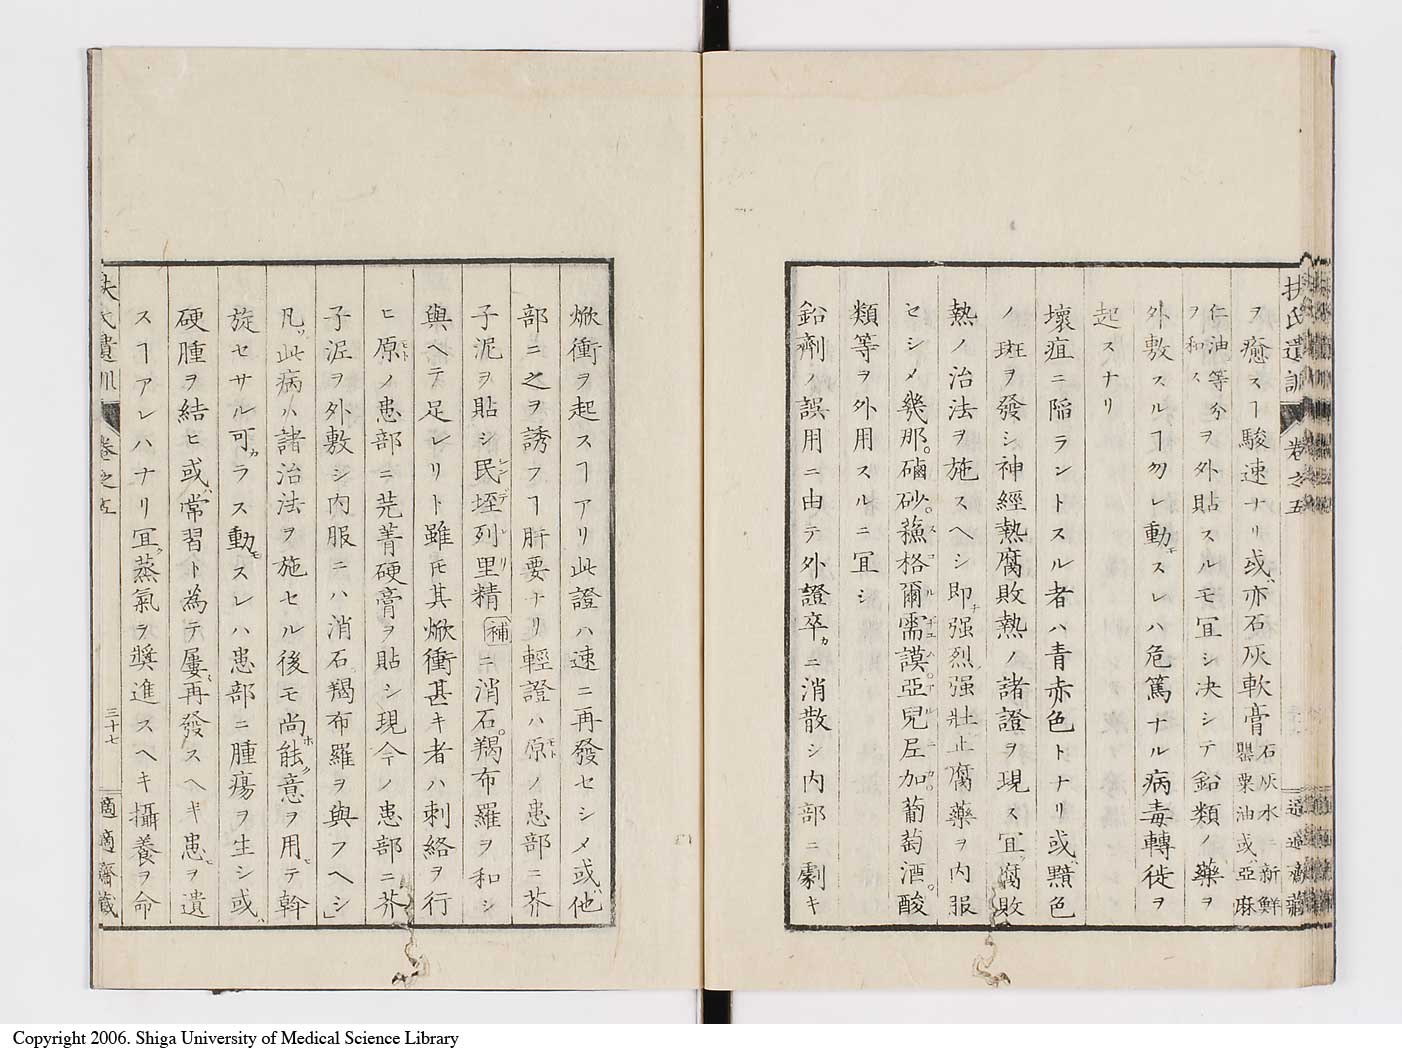 扶氏遺訓 卷之五
ヲ癒スヿ駿速ナリ或ハ亦石灰軟膏石灰水ニ新鮮罌粟油或ハ亞麻
仁油等分ヲ和スヲ外貼スルモ冝シ决シテ鉛類ノ藥ヲ
外敷スルヿ勿レ動モスレハ危篤ナル病毒轉徙ヲ
起スナリ
壞疽ニ陷ラントスル者ハ青赤色トナリ或ハ黯色
ノ斑ヲ發シ神經熱腐敗熱ノ諸證ヲ現ス冝ク腐敗
熱ノ治法ヲ施スヘシ即チ强烈强壯止腐藥ヲ内服
セシメ幾那。磠砂。蘓格爾需謨亞兒尼加。葡萄酒。酸
類等ヲ外用スルニ冝シ
鉛劑ノ誤用ニ由テ外證卒カニ消散シ内部ニ劇キ
焮衝ヲ起スヿアリ此證ハ速ニ再發セシメ或ハ他
部ニ之ヲ誘フヿ肝要ナリ輕證ハ原ノ患部ニ芥
子泥ヲ貼シ民垤列里精補ニ消石。羯布羅ヲ和シ
與ヘテ足レリト雖𪜈其焮衝甚キ者ハ刺絡ヲ行
ヒ原ノ患部ニ芫菁硬膏ヲ貼シ現今ノ患部ニ芥
子泥ヲ外敷シ内服ニハ消石。羯布羅ヲ與フヘシ」
凡ソ此病ハ諸治法ヲ施セル後モ尚ホ能ク意ヲ用テ斡
旋セサル可カラス動モスレハ患部ニ腫瘍ヲ生シ或ハ
硬腫ヲ結ヒ或ハ常習ト為テ屢〻再發スヘキ患ヲ遺
スヿアレハナリ冝ク蒸氣ヲ奬進スヘキ攝養ヲ命
扶氏遺訓 卷之五 三十七 適適齋藏